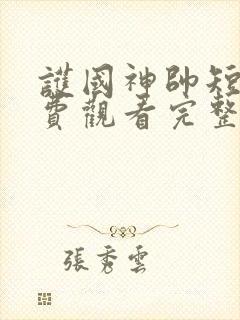 護國神帥短
費觀看完整
張秀雲